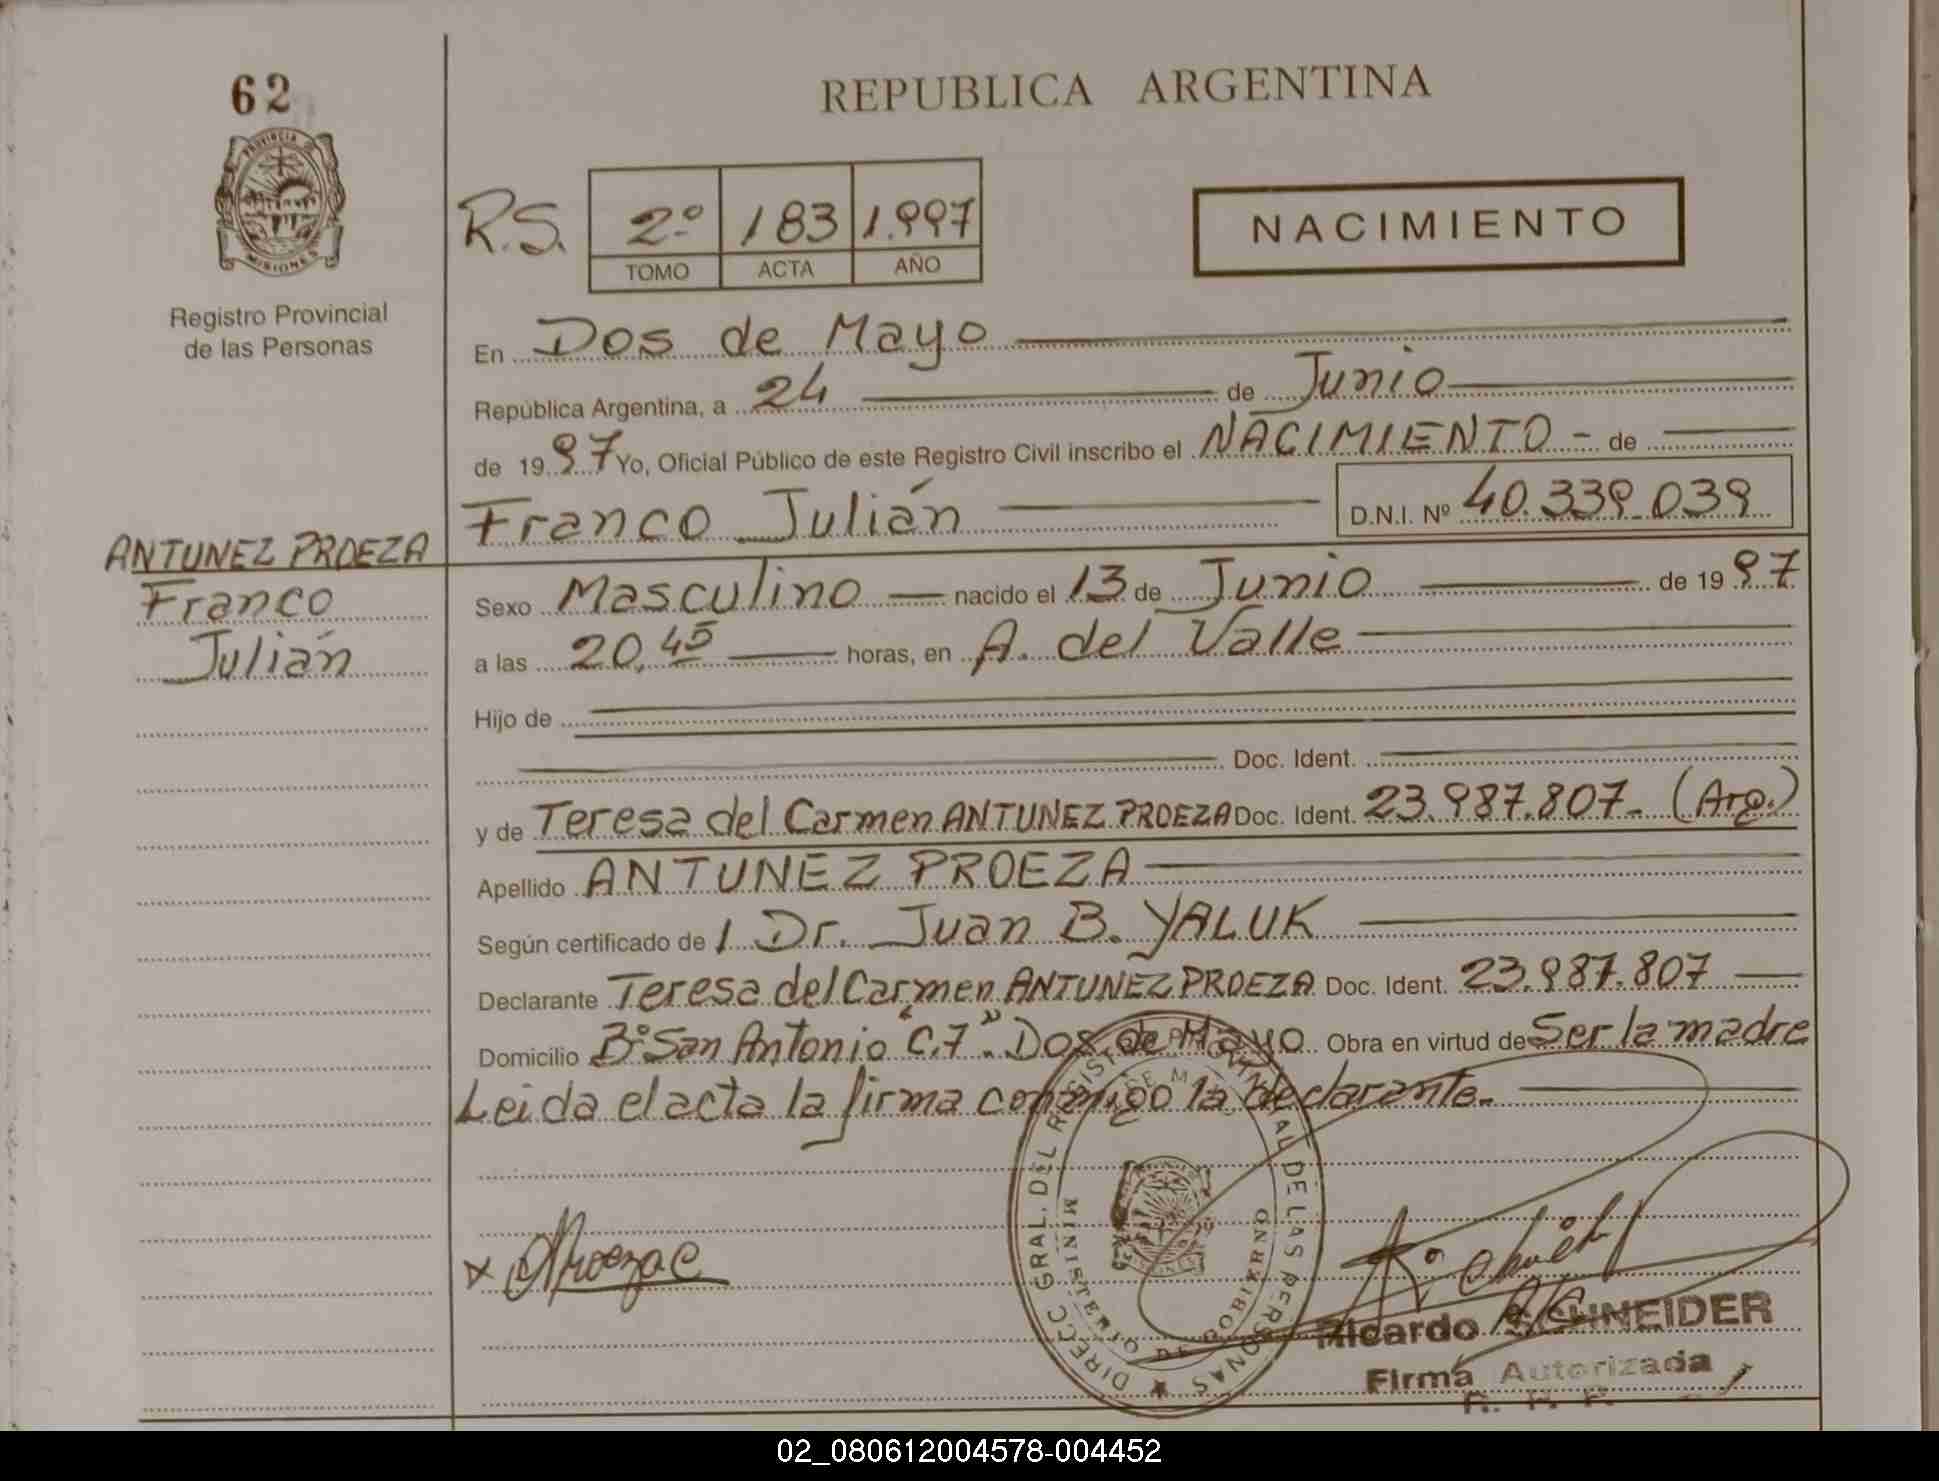 62
REPUBLICA ARGENTINA
PROVINCIA DE
MISIONES
Registro Provincial
de las Personas
R.S. 2º 183 1.997
TOMO ACTA AÑO
NACIMIENTO
En Dos de Mayo
República Argentina, a 24 de Junio
de 19 97 Yo, Oficial Público de este Registro Civil inscribo el NACIMIENTO - de
Franco Julián D.N.I. Nº 40.339.039
ANTUNEZ PROEZA
Franco
Julián
Sexo Masculino nacido el 13 de Junio de 19 97
a las 20,45 horas, en A. del Valle
Hijo de
Doc. Ident.
y de Teresa del Carmen ANTUNEZ PROEZA Doc. Ident. 23.987.807.- (Arg.)
Apellido ANTUNEZ PROEZA
Según certificado de / Dr. Juan B. YALUK
Declarante Teresa del Carmen ANTUNEZ PROEZA Doc. Ident. 23.987.807
Domicilio Bº San Antonio "C.7". Dos de Mayo Obra en virtud de Ser la madre
Leida el acta la firma conmigo la declarante.-
DIRECC. GRAL. DEL REGISTRO PROVINCIAL DE LAS PERSONAS
MINISTERIO DE GOBIERNO
Ricardo SCHNEIDER
Firma Autorizada
02_080612004578-004452